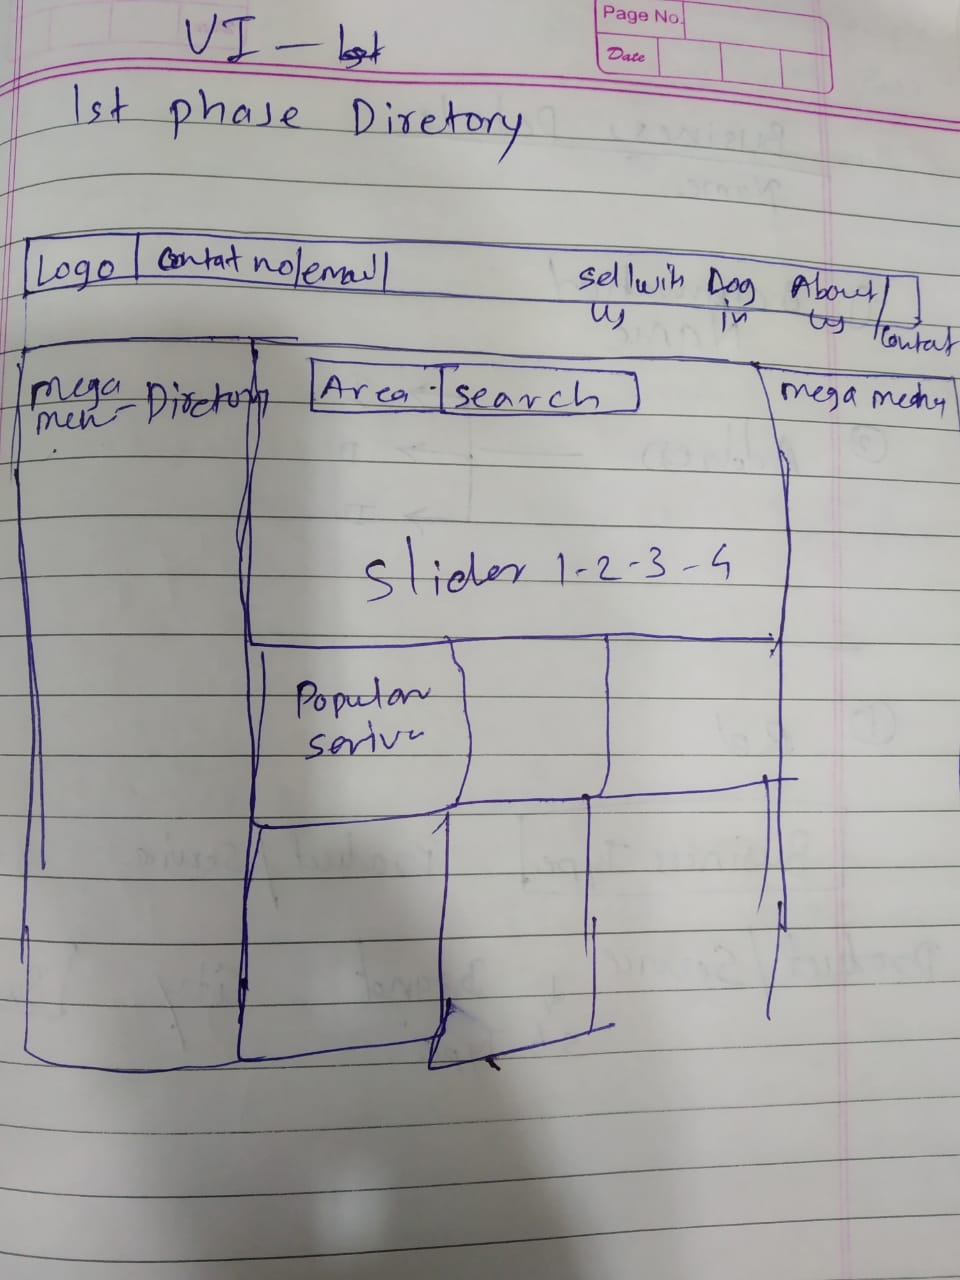 Page No.
Date
VI -
1st phase Diretory
Logo Contat no/email
sell with us
Dog in
About us
Contat
mega men - Diretory
Area search
mega menu
Slider 1-2-3-4
Popular
serive